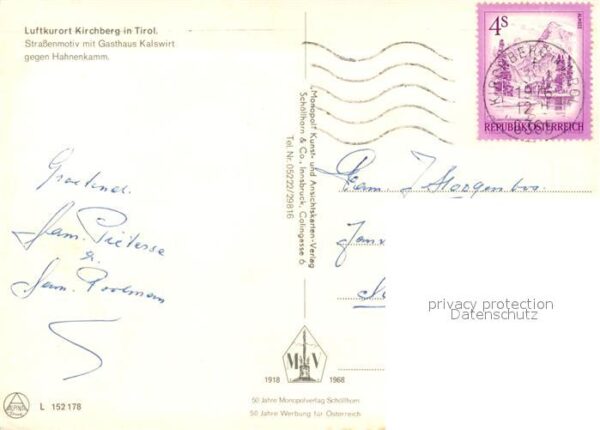 Luftkurort Kirchberg in Tirol.
Straßenmotiv mit Gasthaus Kalswirt
gegen Hahnenkamm.
4S
ALMSEE
REPUBLIK ÖSTERREICH
KIRCHBERG
„Monopol“ Kunst- und Ansichtskarten-Verlag
Schöllhorn & Co., Innsbruck, Colingasse 6
Tel. Nr. 05222/29816
Groetend.
Fam. Pieterse
&
Fam. Poolman
Fam. J
privacy protection
Datenschutz
M V
1918 1968
50 Jahre Monopolverlag Schöllhorn
50 Jahre Werbung für Österreich
ALPINA
L 152178